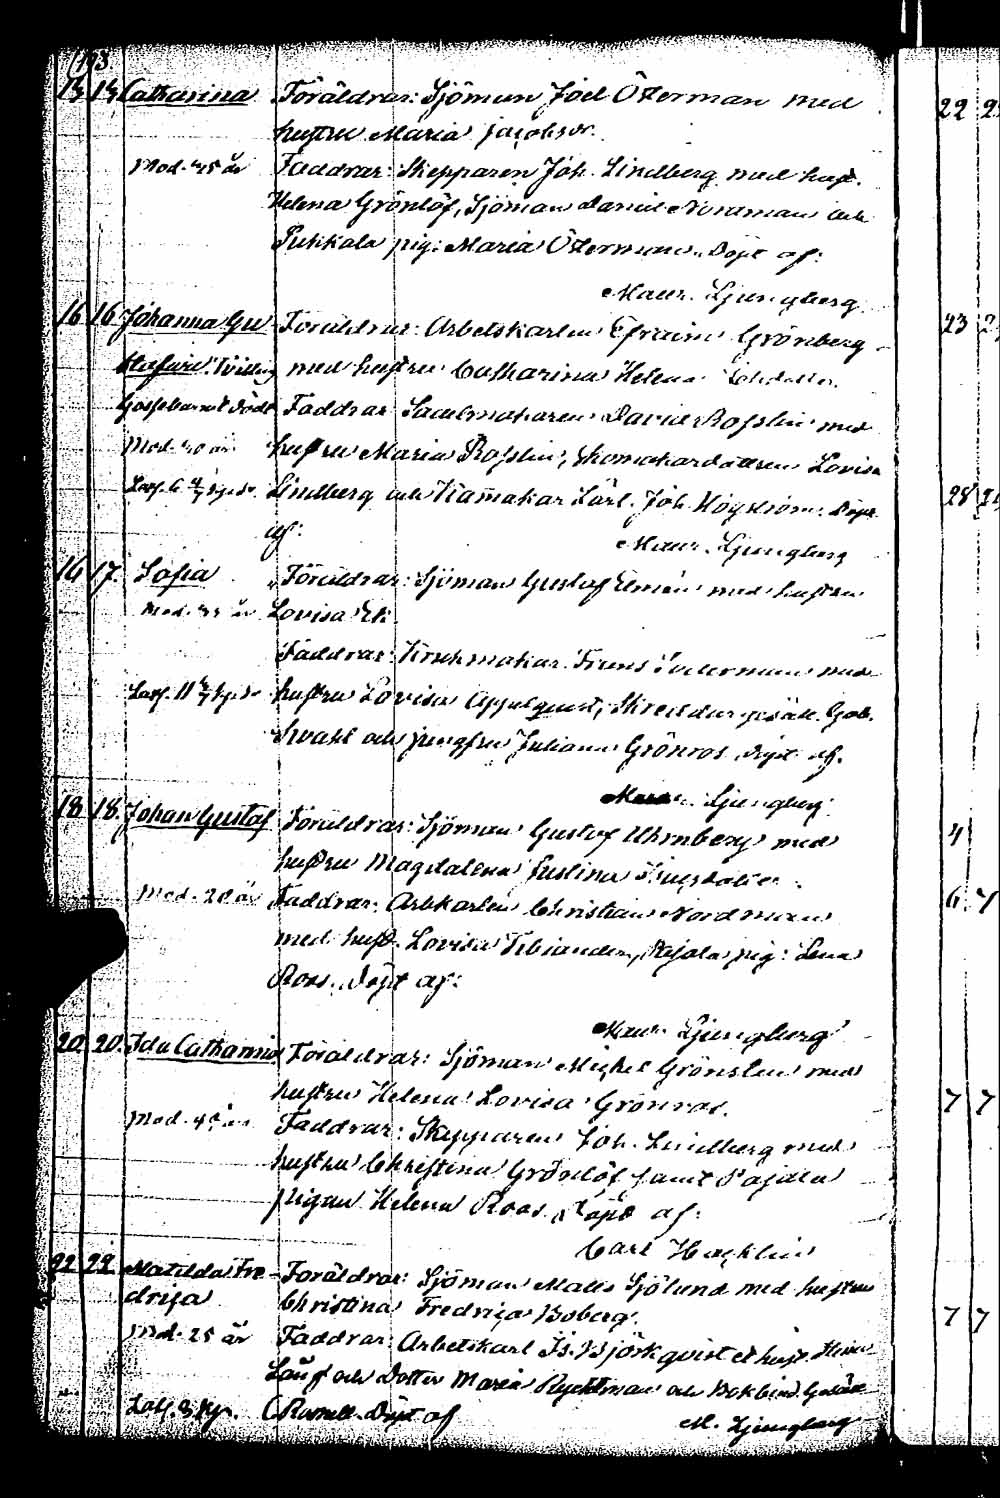 14 14 Catharina Föräldrar: Sjöman Joel Österman med
hustru Maria Jacobsdr.
Mod. 35 år Faddrar: Skepparen Joh. Lindberg med hust.
Helena Grönlöf, Sjöman Daniel Nordman och
pig: Maria Österman. Döpt af:
Maur. Ljungberg
16 16 Johanna Gu Föräldrar: Arbetskarlen Efraim Grönberg
stafva. Tvilling med hustru Catharina Helena
Gossebarnet dödt Faddrar: Sadelmakaren David Rosslin med
Mod. 40 år hustru Maria Rosslin, Skomakardottren Lovisa
Lindberg och Kammakar Lärl. Joh. Högström. Döpt
af: Maur. Ljungberg
16 17. Sofia Föräldrar: Sjöman Gustaf med hustru
Lovisa Ek.
Faddrar: Frans Söderman med
hustru Lovisa Appelqvist, Skreddar gesäll. Gab.
Swahl och jungfru Juliana Grönros. Döpt af.
Maur. Ljungberg.
18 18. Johan Gustaf Föräldrar: Sjöman Gustaf Uhrnberg med
hustru Magdalena Justina
Mod. 28 år Faddrar: Arbkarlen Christian Nordman
med hust. Lovisa pig: Lena
Roos. Döpt af:
Maur. Ljungberg
20 20. Ida Catharina Föräldrar: Sjöman Michel Grönsten med
hustru Helena Lovisa Grönros.
Mod. 45 år Faddrar: Skepparen Joh. Lindberg med
hustru Christina Grönlöf samt
pigan Helena Roos. Döpt af:
Carl Hacklin
22 22. Matilda Fre- Föräldrar: Sjöman Matts Sjölund med hustru
drica Christina Fredrica Boberg.
Mod. 25 år Faddrar: Arbetskarl Is. Björkqvist et hust.
och Dotter Maria och Bokbind. Gesäll
C. Döpt af M. Ljungberg
22
23
28
4
6 7
7 7
7 7